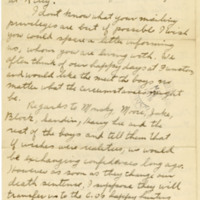 I dont know what your mailing
privileges are but if possible I wish
you would spare a letter informing
us, whom you are living with. We
often think of our happy days at
and would like to meet the boys no
matter what the circumstances might
be.
Regards to
Block, and the
rest of the boys and tell them that
if wishes were realities, we would
be exchanging confidences long ago.
However as soon as they change our
death sentence, I suppose they will
transfer us to the happy hunting